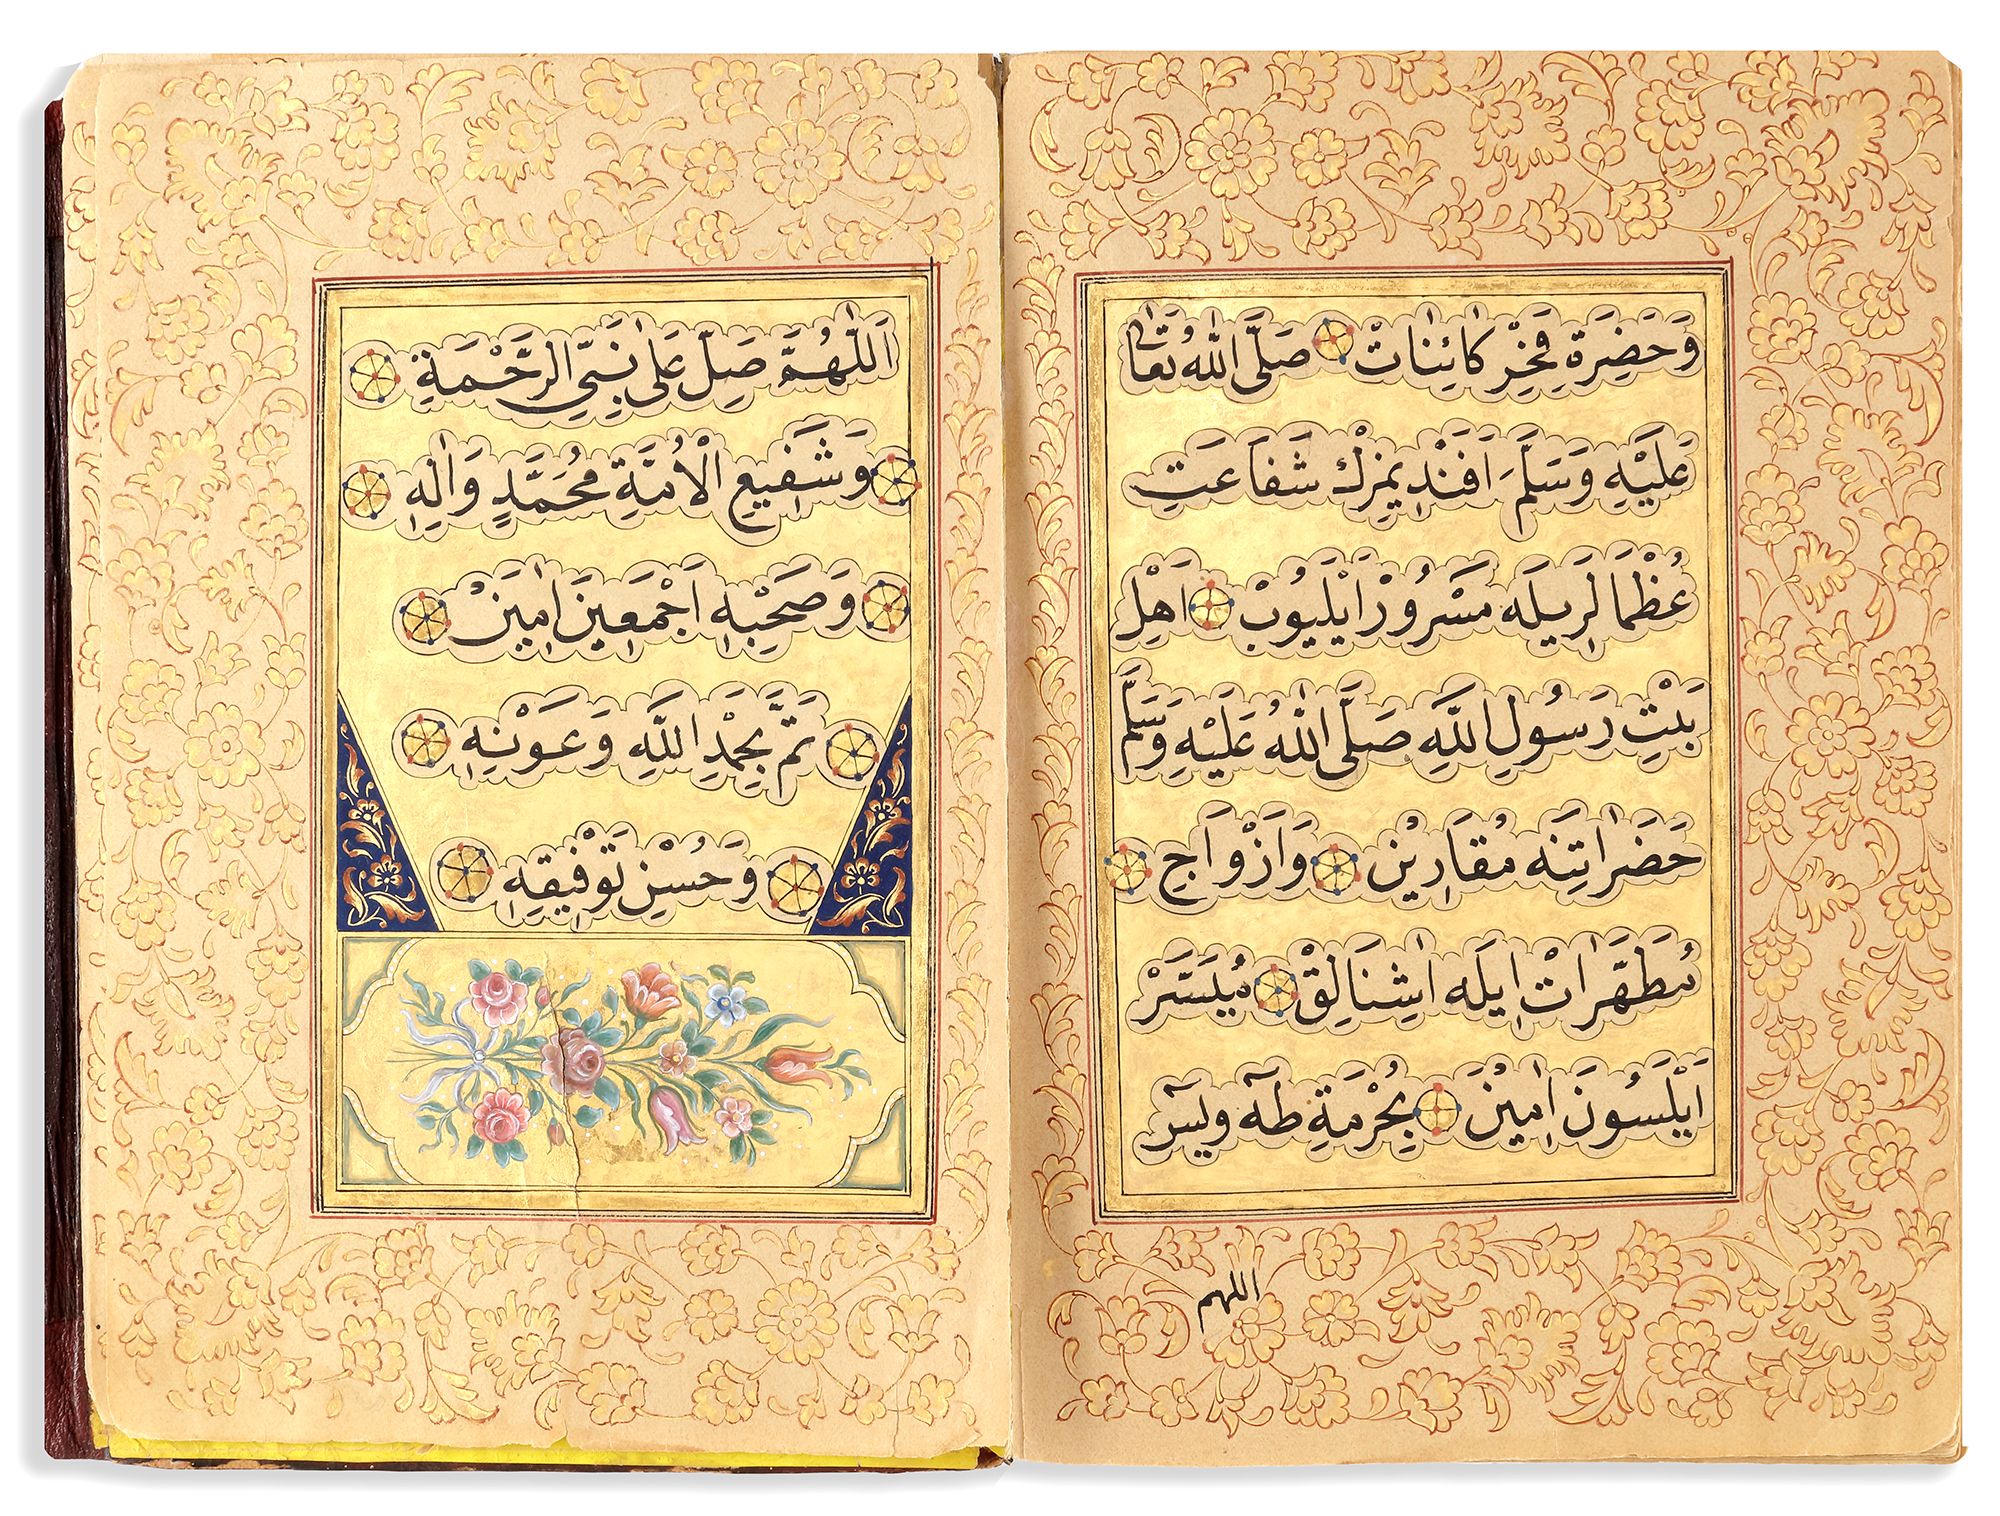 وَحَضَرَةِ فَخْرِ كَائِنَاتْ صَلَّى اللّٰهُ تَعَالٰى
عَلَيْهِ وَسَلَّمَ اَفَنْدِيمِزِكْ شَفَاعَتِ
عُظْمَالَرِيلَه مَسْرُورْ اَيْلَيُوبْ اَهْلِ
بَيْتِ رَسُولِ اللّٰهِ صَلَّى اللّٰهُ عَلَيْهِ وَسَلَّمْ
حَضَرَاتِنَه مُقَارِيْن وَاَزْوَاجِ
مُطَهَّرَاتْ اِيلَه اٰشِنَالِقْ مُيَسَّرْ
اَيْلَسُونَ اٰمِيْنَ بِحُرْمَةِ طٰهٓ وَيسٓ
اللهم
اَللّٰهُمَّ صَلِّ عَلٰى نَبِيِّ الرَّحْمَةِ
وَشَفِيعِ الْاُمَّةِ مُحَمَّدٍ وَاٰلِهِ
وَصَحْبِهِ اَجْمَعِينَ اٰمِينَ
تَمَّ بِحَمْدِ اللّٰهِ وَعَوْنِهِ
وَحُسْنِ تَوْفِيقِهِ